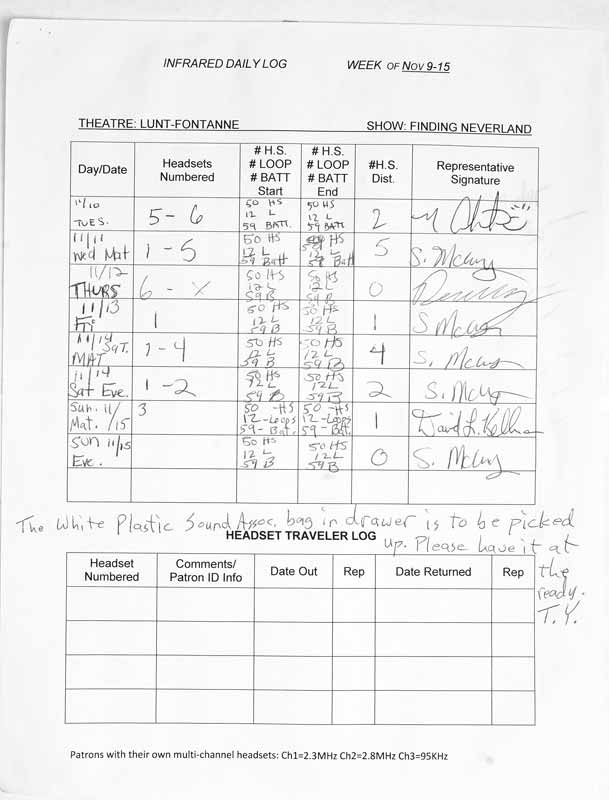 INFRARED DAILY LOG WEEK OF NOV 9-15
THEATRE: LUNT-FONTANNE SHOW: FINDING NEVERLAND
Day/Date Headsets Numbered # H.S. # LOOP # BATT Start # H.S. # LOOP # BATT End #H.S. Dist. Representative Signature
11/10 TUES. 5 - 6 50 HS 12 L 59 BATT. 50 HS 12 L 59 BATT 2
11/11 Wed Mat 1 - 5 50 HS 12 L 59 Batt HS 12 L Batt 5 S. McIvoy
11/12 THURS 50 HS 12 L 59 B 50 HS 12 L 59 B 0
11/13 Fri 1 50 HS 12 L 59 B 50 HS 12 L 59 B 1
11/14 Sat. MAT 1 - 4 50 HS 12 L 59 B 50 HS 12 L 59 B 4
11/14 Sat Eve. 1 - 2 50 HS 12 L 59 B 50 HS 12 L 59 B 2
Sun. 11/ Mat. /15 3 50 - HS 12 - Loops 59 - Bat. 50 - HS 12 - Loops 59 - Bat. 1 David L.
SUN 11/15 Eve. 50 HS 12 L 59 B 50 HS 12 L 59 B 0
The White Plastic Sound Assoc. bag in drawer is to be picked
up. Please have it at
the
ready.
T.Y.
HEADSET TRAVELER LOG
Headset Numbered Comments/ Patron ID Info Date Out Rep Date Returned Rep
Patrons with their own multi-channel headsets: Ch1=2.3MHz Ch2=2.8MHz Ch3=95KHz